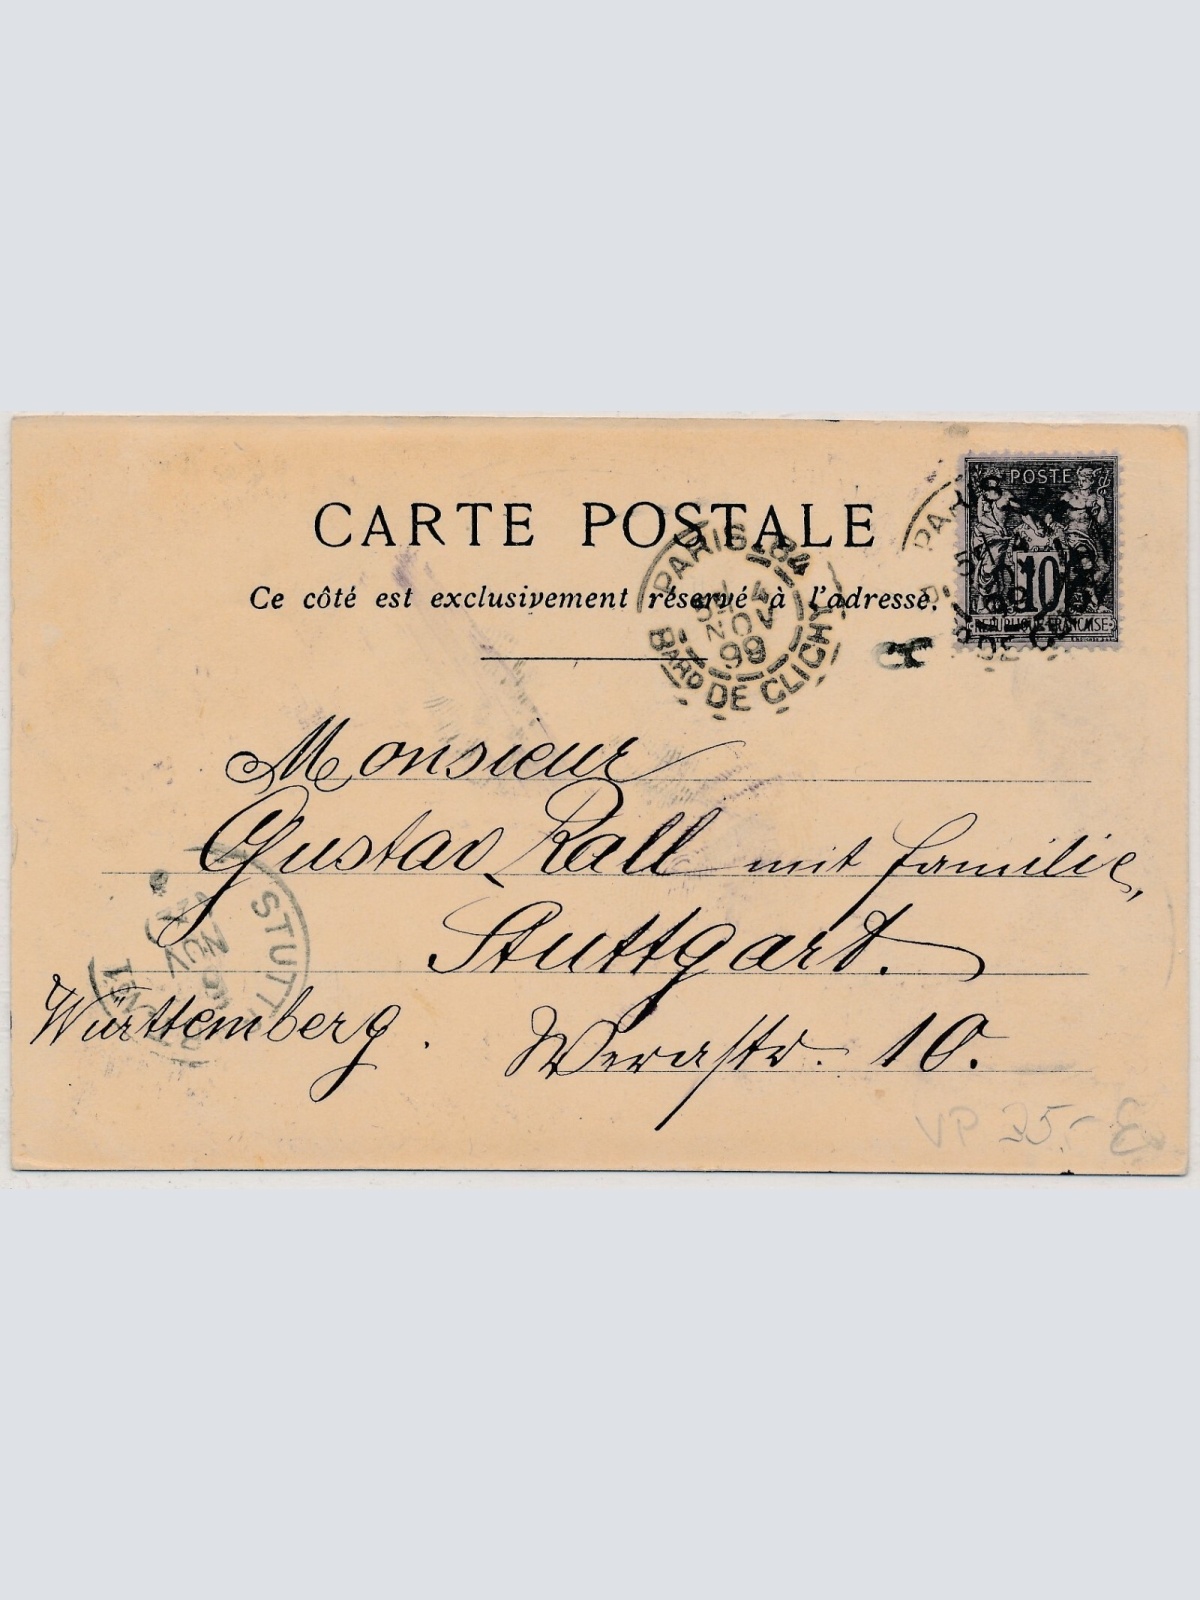 POSTE
10
REPUBLIQUE FRANÇAISE
CARTE POSTALE
PARIS-84
4
NOV
99
BARD DE CLICHY
PARIS
DE
Ce côté est exclusivement réservé à l'adresse.
Monsieur
Gustav Rall mit Familie,
Stuttgart.
Württemberg. Werastr. 10.
STUTT
NOV
VP 35.-